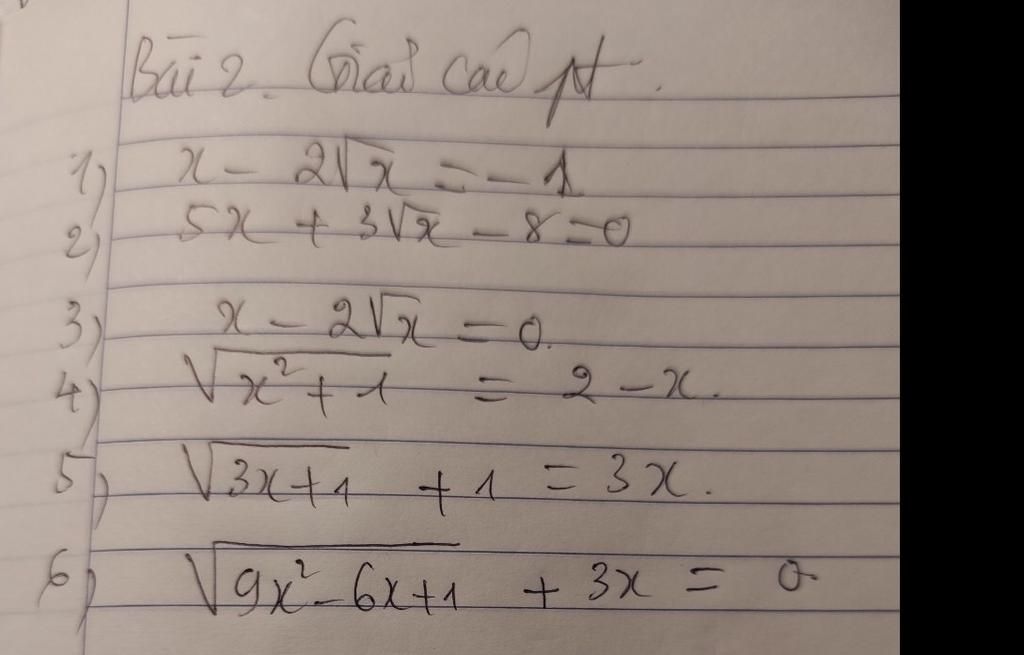 Bài 2. Giải các pt.
1) x - 2√x = - 1
2) 5x + 3√x - 8 = 0
3) x - 2√x = 0.
4) √(x² + 1) = 2 - x.
5) √(3x+1) + 1 = 3x.
6) √(9x² - 6x + 1) + 3x = 0